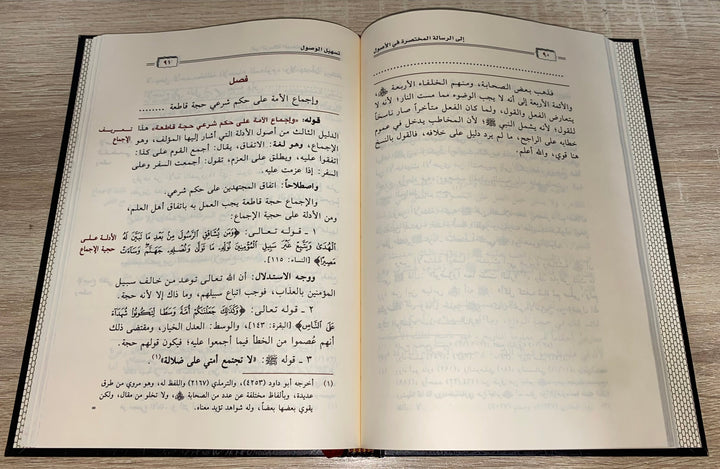 ٩٠
إلى الرسالة المختصرة في الأصول
فذهب بعض الصحابة، ومنهم الخلفاء الأربعة ﷺ،
والأئمة الأربعة إلى أنه لا يجب الوضوء مما مست النار؛ لأنه لا
يتعارض الفعل والقول، ولما كان الفعل متأخراً صار ناسخاً
للقول؛ لأنه يشمل النبي ﷺ؛ لأن المخاطب يدخل في عموم
خطابه على الراجح، ما لم يرد دليل على خلافه، فالقول بالنسخ
هنا قوي، والله أعلم.
تسهيل الوصول
٩١
فصل
وإجماع الأمة على حكم شرعي حجة قاطعة
قوله: «وإجماع الأمة على حكم شرعي حجة قاطعة» هذا
تعريف الإجماع
الدليل الثالث من أصول الأدلة التي أشار إليها المؤلف، وهو
الإجماع، وهو لغة: الاتفاق، يقال: أجمع القوم على كذا:
اتفقوا عليه، ويطلق على العزم، تقول: أجمعت السفر وعلى
السفر: إذا عزمت عليه.
واصطلاحاً: اتفاق المجتهدين على حكم شرعي.
والإجماع حجة قاطعة يجب العمل به باتفاق أهل العلم،
ومن الأدلة على حجية الإجماع:
١ ـ قوله تعالى: ﴿وَمَن يُشَاقِقِ ٱلرَّسُولَ مِنۢ بَعْدِ مَا تَبَيَّنَ لَهُ
الأدلة على حجية الإجماع
ٱلْهُدَىٰ وَيَتَّبِعْ غَيْرَ سَبِيلِ ٱلْمُؤْمِنِينَ نُوَلِّهِۦ مَا تَوَلَّىٰ وَنُصْلِهِۦ جَهَنَّمَ وَسَآءَتْ
مَصِيرًا﴾ [النساء: ١١٥].
ووجه الاستدلال: أن الله تعالى توعد من خالف سبيل
المؤمنين بالعذاب، فوجب اتباع سبيلهم، وما ذاك إلا لأنه حجة.
٢ ـ قوله تعالى: ﴿وَكَذَٰلِكَ جَعَلْنَٰكُمْ أُمَّةً وَسَطًا لِّتَكُونُوا۟ شُهَدَآءَ
عَلَى ٱلنَّاسِ﴾ [البقرة: ١٤٣]، والوسط: العدل الخيار، ومقتضى ذلك
أنهم عُصموا من الخطأ فيما أجمعوا عليه؛ فيكون قولهم حجة.
٣ ـ قوله ﷺ: «لا تجتمع أمتي على ضلالة»(١)
(١) أخرجه أبو داود (٤٢٥٣)، والترمذي (٢١٦٧) واللفظ له، وهو مروي من طرق
عديدة، وبألفاظ مختلفة عن عدد من الصحابة، ولا تخلو من مقال، ولكن
يقوي بعضها بعضاً، وله شواهد تؤيد معناه.